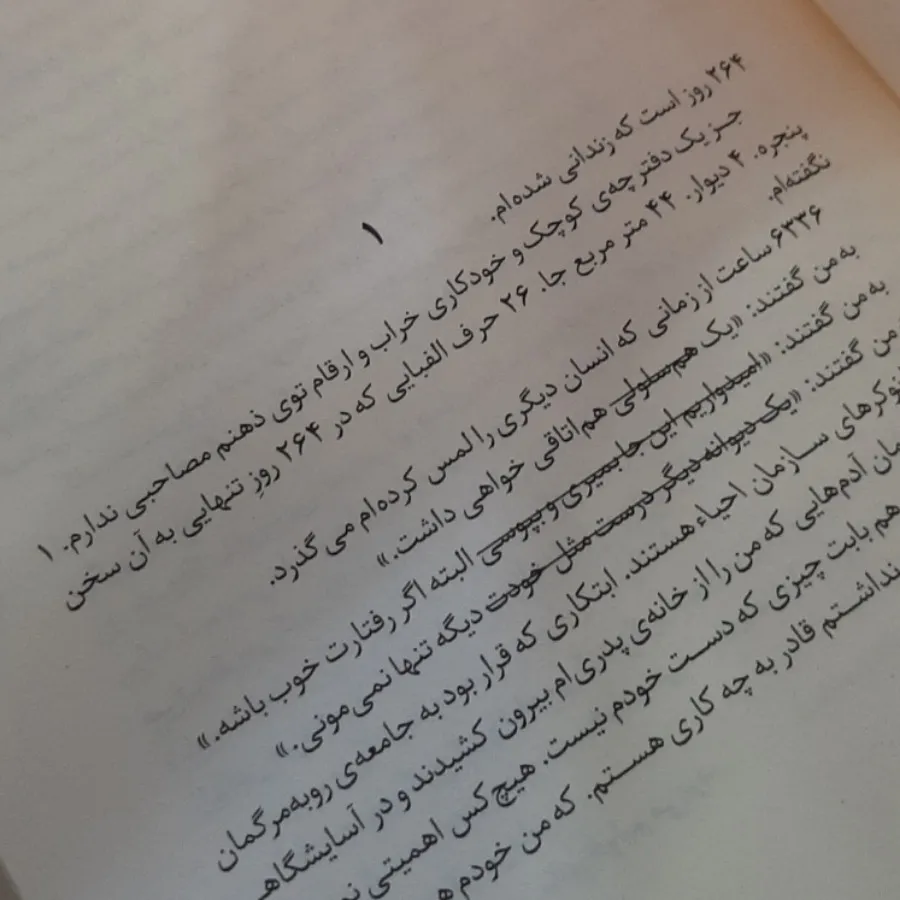 ۱
۲۶۴ روز است که زندانی شده‌ام.
جـز یک دفترچه‌ی کوچک و خودکاری خراب و ارقام توی ذهنم مصاحبی ندارم. ۱
پنجره. ۴ دیوار. ۴۴ متر مربع جا. ۲۶ حرف الفبایی که در ۲۶۴ روزِ تنهایی به آن سخن
نگفته‌ام.
۶۳۳۶ ساعت از زمانی که انسان دیگری را لمس کرده‌ام می گذرد.
به من گفتند: «یک هم‌سلولی هم‌اتاقی خواهی داشت.»
به من گفتند: «امیدواریم این جا بمیری و بپوسی البته اگر رفتارت خوب باشه.»
من گفتند: «یک دیوانه دیگر درست مثل خودت دیگه تنها نمی‌مونی.»
نوکرهای سـازمان احیاء هستند. ابتکاری که قرار بود به جامعه‌ی روبه‌مرگمان
مان آدم‌هایی که من را از خانه‌ی پدری‌ام بیرون کشیدند و در آسایشگاهـ
هم بابت چیزی که دسـت خودم نیست. هیچ‌کس اهمیتی
نداشـتم قادر به چه کاری هسـتم. که من خودم